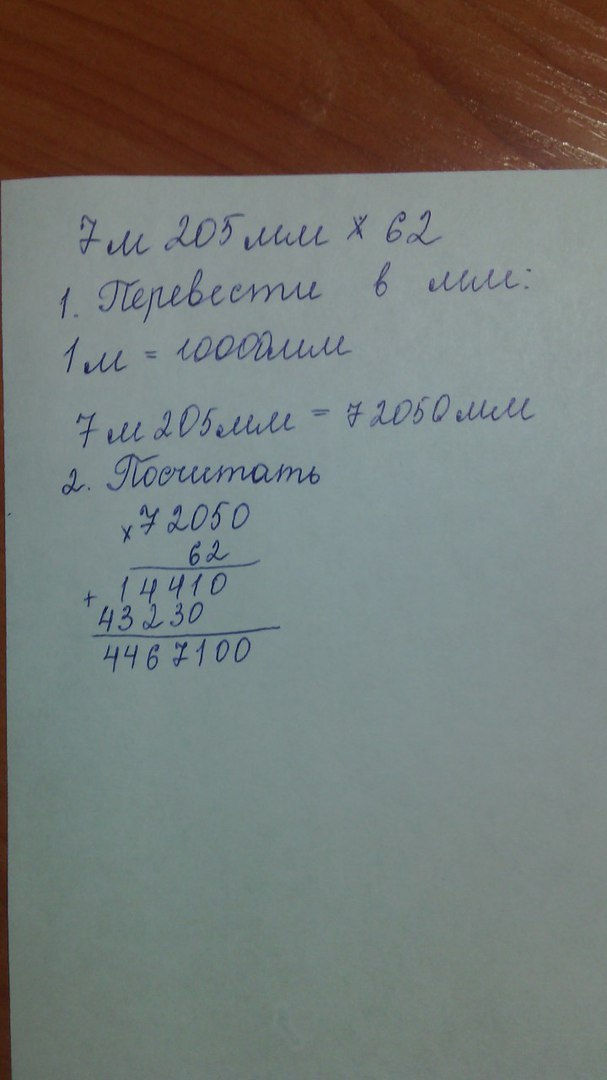 7м 205мм × 62
1. Перевести в мм:
1м = 10000мм
7м 205мм = 72050мм
2. Посчитать
×72050
62
+ 14410
43230
4467100